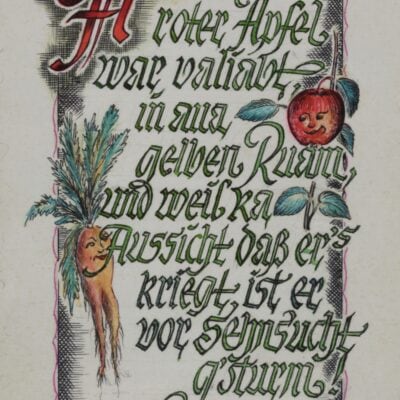 A roter Apfel
war valiabt,
in ana
gelben Ruam,
und weil ka
Aussicht daß er's
kriegt, ist er
vor Sehnsucht
g'sturm